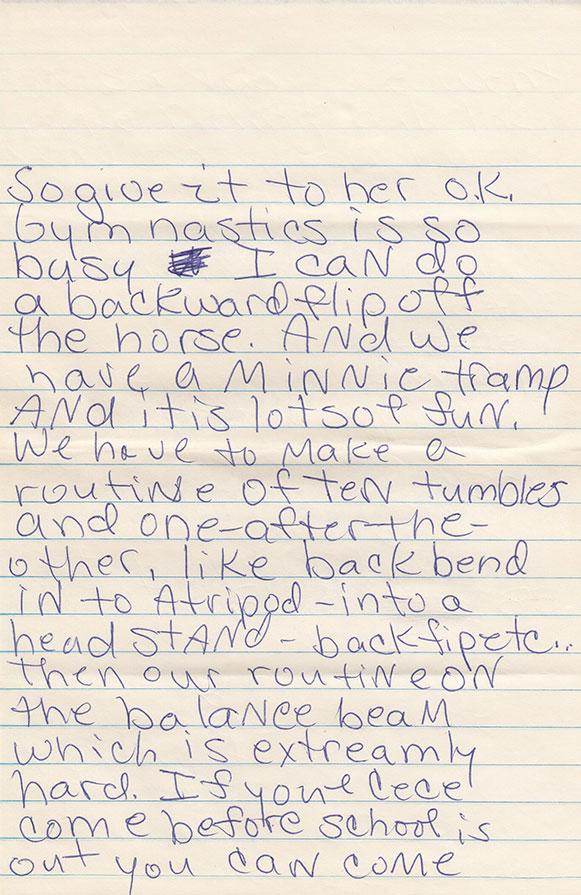 So give it to her O.K.
Gymnastics is so
busy I can do
a backward flip off
the horse. And we
have a Minnie tramp
And it is lots of fun.
We have to make a
routine of ten tumbles
and one-after-the-
other, like back bend
in to A tripod - into a
head stand - back fip etc..
then our routine on
the balance beam
which is extreamly
hard. If you & Cece
come before school is
out you can come